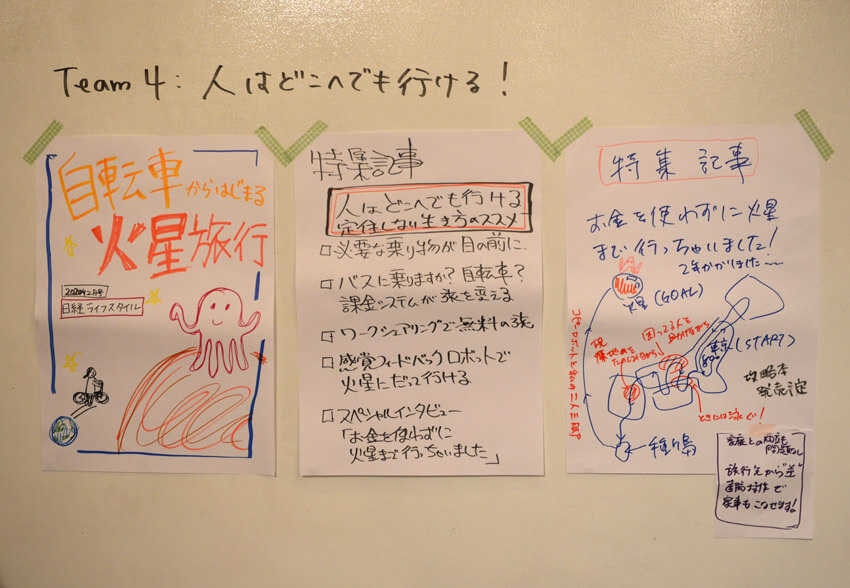 Team 4: 人はどこへでも行ける!
自転車からはじまる
火星旅行
日経ライフスタイル
特集記事
人はどこへでも行ける
定住しない生き方のススメ
□必要な乗り物が目の前に.
□バスに乗りますか?自転車?
課金システムが旅を変える
□ワークシェアリングで無料の旅
□感覚フィードバックロボットで
火星にだって行ける
□スペシャルインタビュー
「お金を使わずに
火星まで行っちゃいました」
特集記事
お金を使わずに火星
まで行っちゃいました!
2年かかりました…
火星(GOAL)
困ってる人を
助けながら
東京
(START)
攻略本
発売決定
種子島
家庭との両立も
問題なし
旅行先から"逆"
遠隔操作で
家事もこなせます!